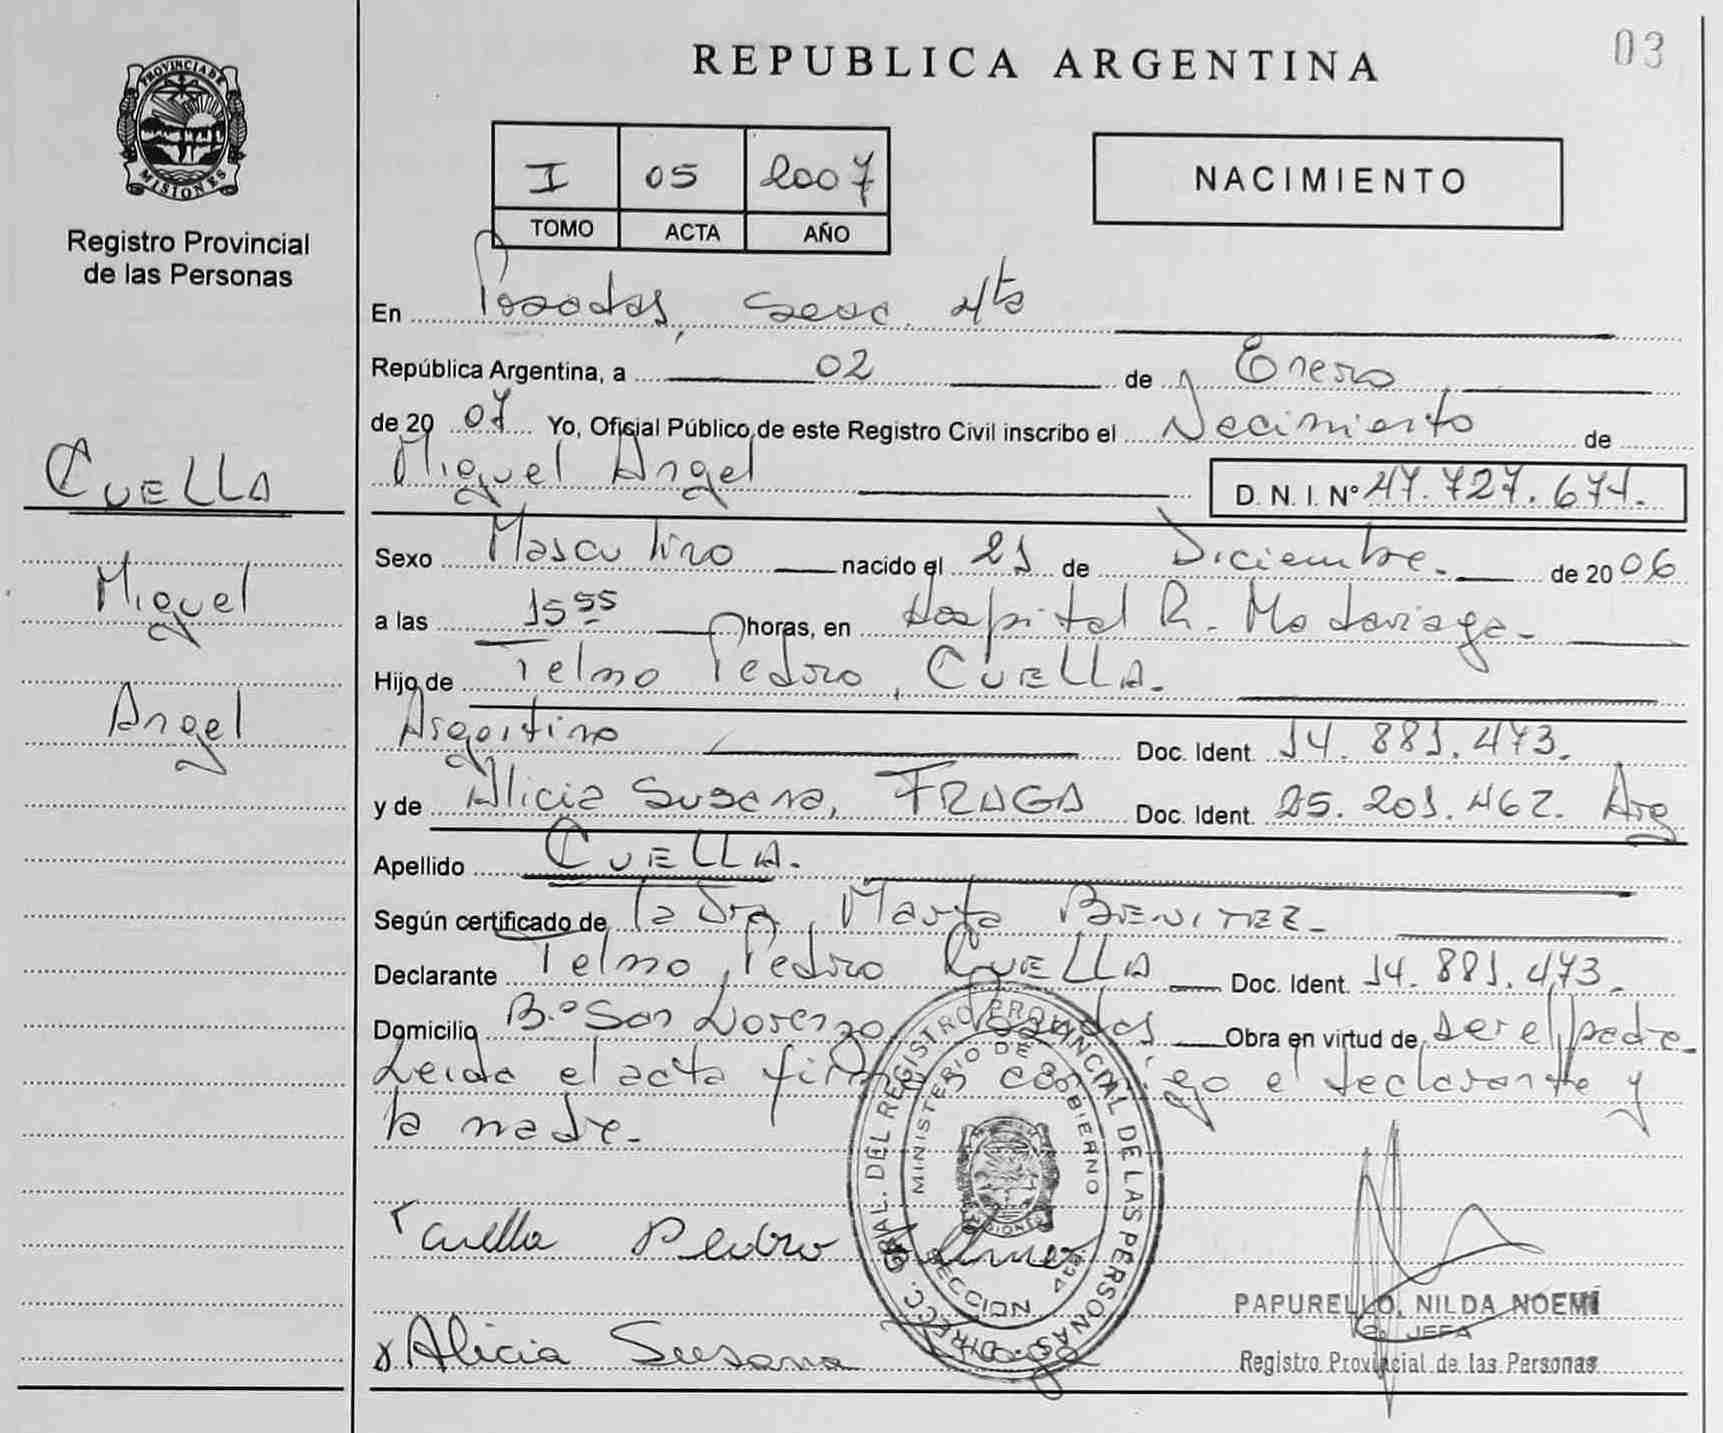 03
PROVINCIA DE
MISIONES
Registro Provincial
de las Personas
REPUBLICA ARGENTINA
I 05 2007
TOMO ACTA AÑO
NACIMIENTO
En Posadas, Secc. 4ta
República Argentina, a 02 de Enero
de 2007 Yo, Oficial Público de este Registro Civil inscribo el Nacimiento de
Miguel Angel D. N. I. Nº 47.727.671.
Sexo Masculino nacido el 21 de Diciembre. de 2006
a las 15 55 horas, en Hospital R. Madariaga-
Hijo de Telmo Pedro, CUELLA.
Argentino Doc. Ident. 14.881.473.
y de Alicia Susana, FRAGA Doc. Ident. 25.201.462. Arg
Apellido CUELLA.
Según certificado de la Dra. Marta BENITEZ-
Declarante Telmo Pedro CUELLA Doc. Ident. 14.881.473.
Domicilio B.º San Lorenzo, Posadas, Obra en virtud de ser el padre-
Leida el acta firman conmigo el declarante y
la madre-
CUELLA
Miguel
Angel
Cuella Pedro Telmo
Alicia Susana
DIRECC. GRAL. DEL REGISTRO PROVINCIAL DE LAS PERSONAS
MINISTERIO DE GOBIERNO
MISIONES
SECCION 4ta
PAPURELLO, NILDA NOEMI
JEFA
Registro Provincial de las Personas